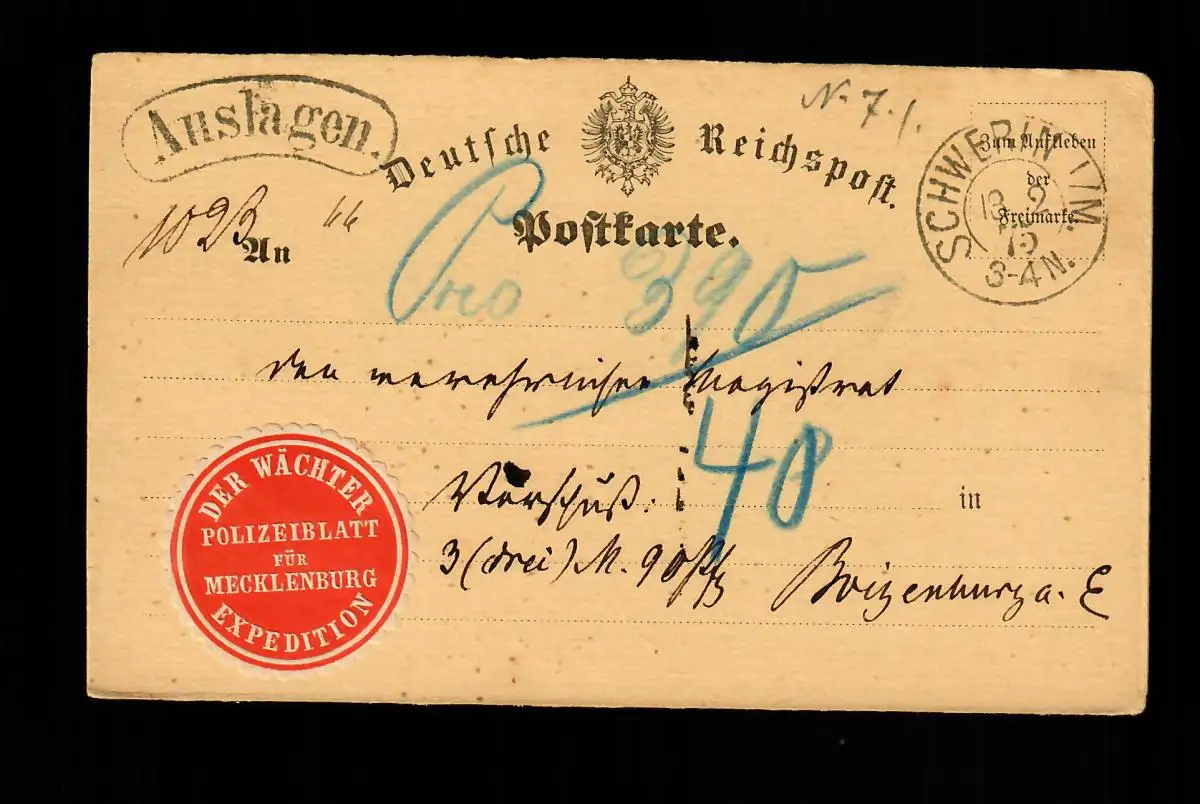 Auslagen.
N. 7.
Deutsche Reichspost.
Zum Aufkleben
der
Freimarke.
SCHWERIN I/M.
75
3-4 N.
Postkarte.
An
Pro 390
den Magistrat
40
Vorschuß.
in
3 (drei) M. 90 Pf
Boizenburg a. E
DER WÄCHTER
POLIZEIBLATT
FÜR
MECKLENBURG
EXPEDITION